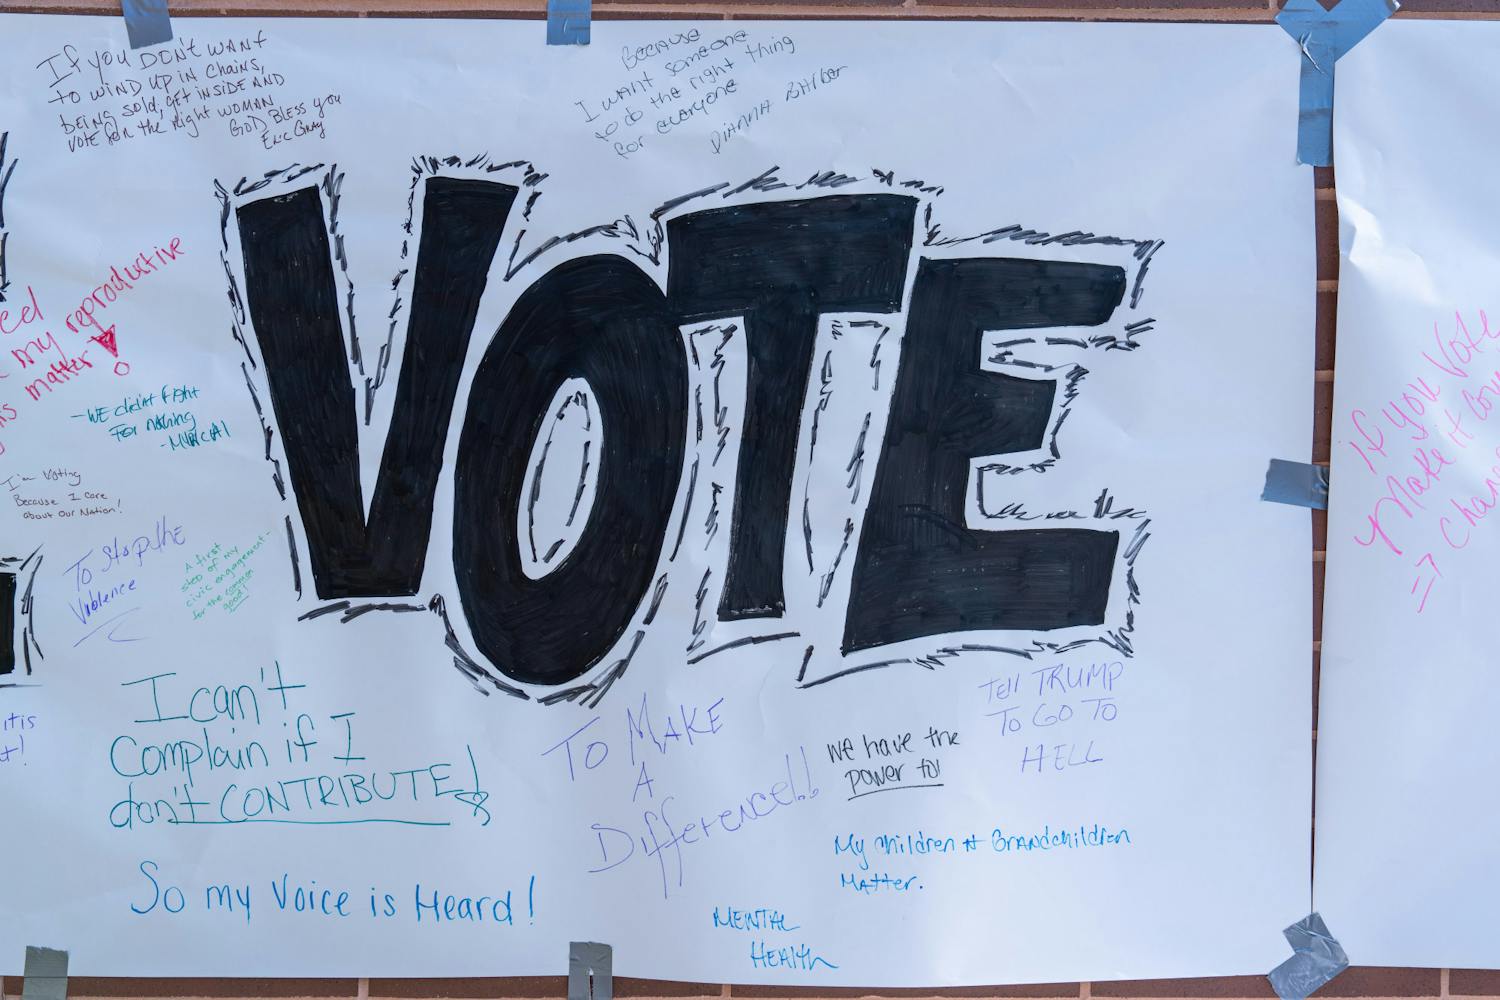 If you DON'T WANT
to WIND UP IN chains,
being sold, get inside AND
VOTE for the right WOMAN
GOD BLESS you
Eric Gray
Because
I want someone
to do the right thing
for everyone
DIANNA
VOTE
my reproductive
matter!
-WE didn't fight
For nothing
I'm Voting
Because I care
about Our Nation!
To Stop the
Violence
A first
step of my
civic engagement-
for the common
good!
it is
I can't
Complain if I
don't CONTRIBUTE!
So my Voice is Heard!
TO MAKE
A
Difference!!
we have the
power to!
Tell TRUMP
TO GO TO
HELL
My children + Grandchildren
Matter.
MENTAL
HEALTH
if you Vote
Make it
=>